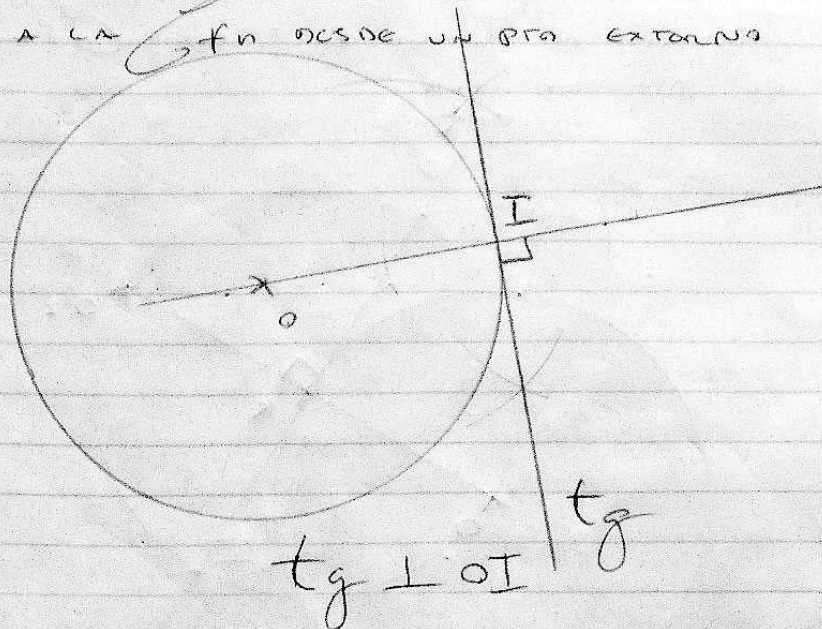 A LA Cfn DESDE UN PTO EXTERNO
I
O
tg
tg ⊥ OI